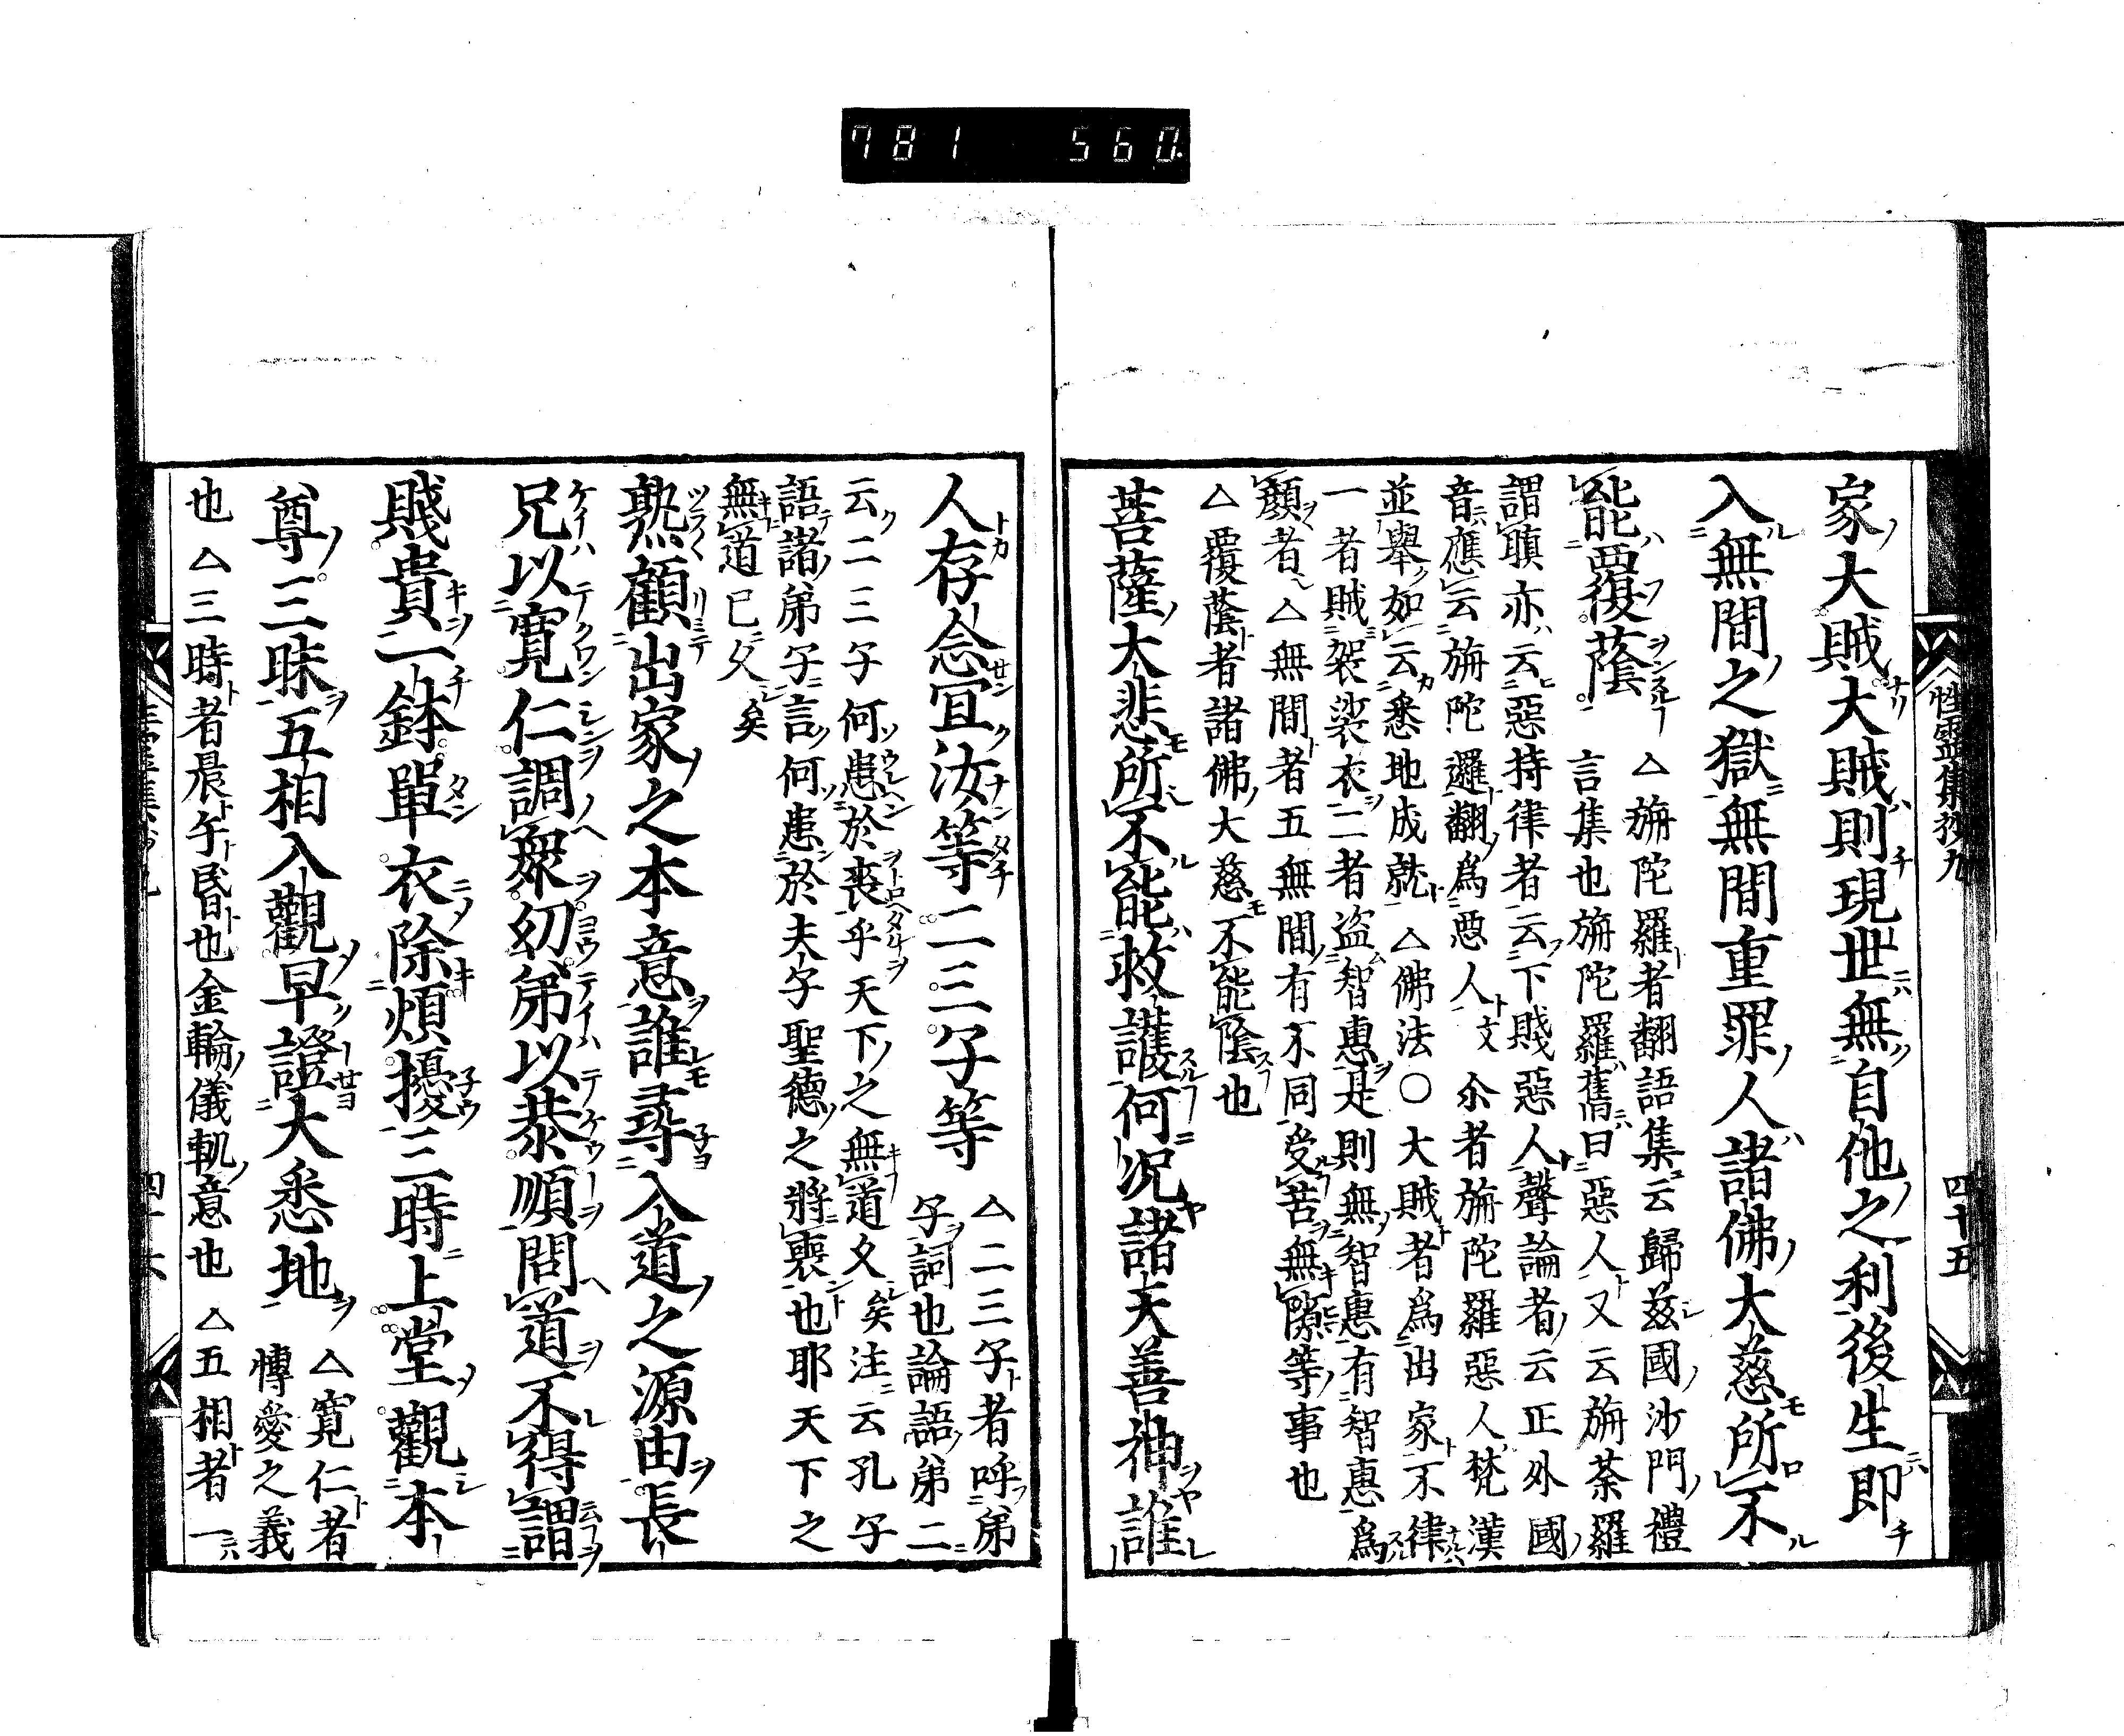 781 560
性靈集抄九 四十五
家大賊大賊則現世無自他之利後生即
入無間之獄無間重罪人諸佛大慈所不
能覆蔭
△旃陀羅者翻語集云歸兹國沙門禮
言集也旃陀羅舊曰惡人又云旃荼羅
謂䐜亦云惡持律者云下賤惡人聲論者云正外國
音應云旃陀邏翻爲惡人文 尒者旃陀羅惡人梵漢
並舉如云悉地成就 △佛法〇大賊者爲出家不律
一者賊袈裟衣二者盗智惠是則無智惠有智惠爲
顏者 △無間者五無間有不同受苦無隙等事也
△覆蔭者諸佛大慈不能陰也
菩薩大悲所不能救護何况諸天善神誰
人存念宜汝等二三子等
△二三子者呼弟
子詞也論語弟二
云二三子何患於喪乎天下之無道久矣注云孔子
語諸弟子言何患於夫子聖德之將喪也耶天下之
無道已久矣
熟顧出家之本意誰尋入道之源由長
兄以寛仁調衆幼弟以恭順問道不得謂
賤貴一鉢單衣除煩擾三時上堂觀本
尊三昧五相入觀早證大悉地
△寛仁者
愽愛之義
也 △三時者晨午昏也金輪儀軌意也 △五相者一